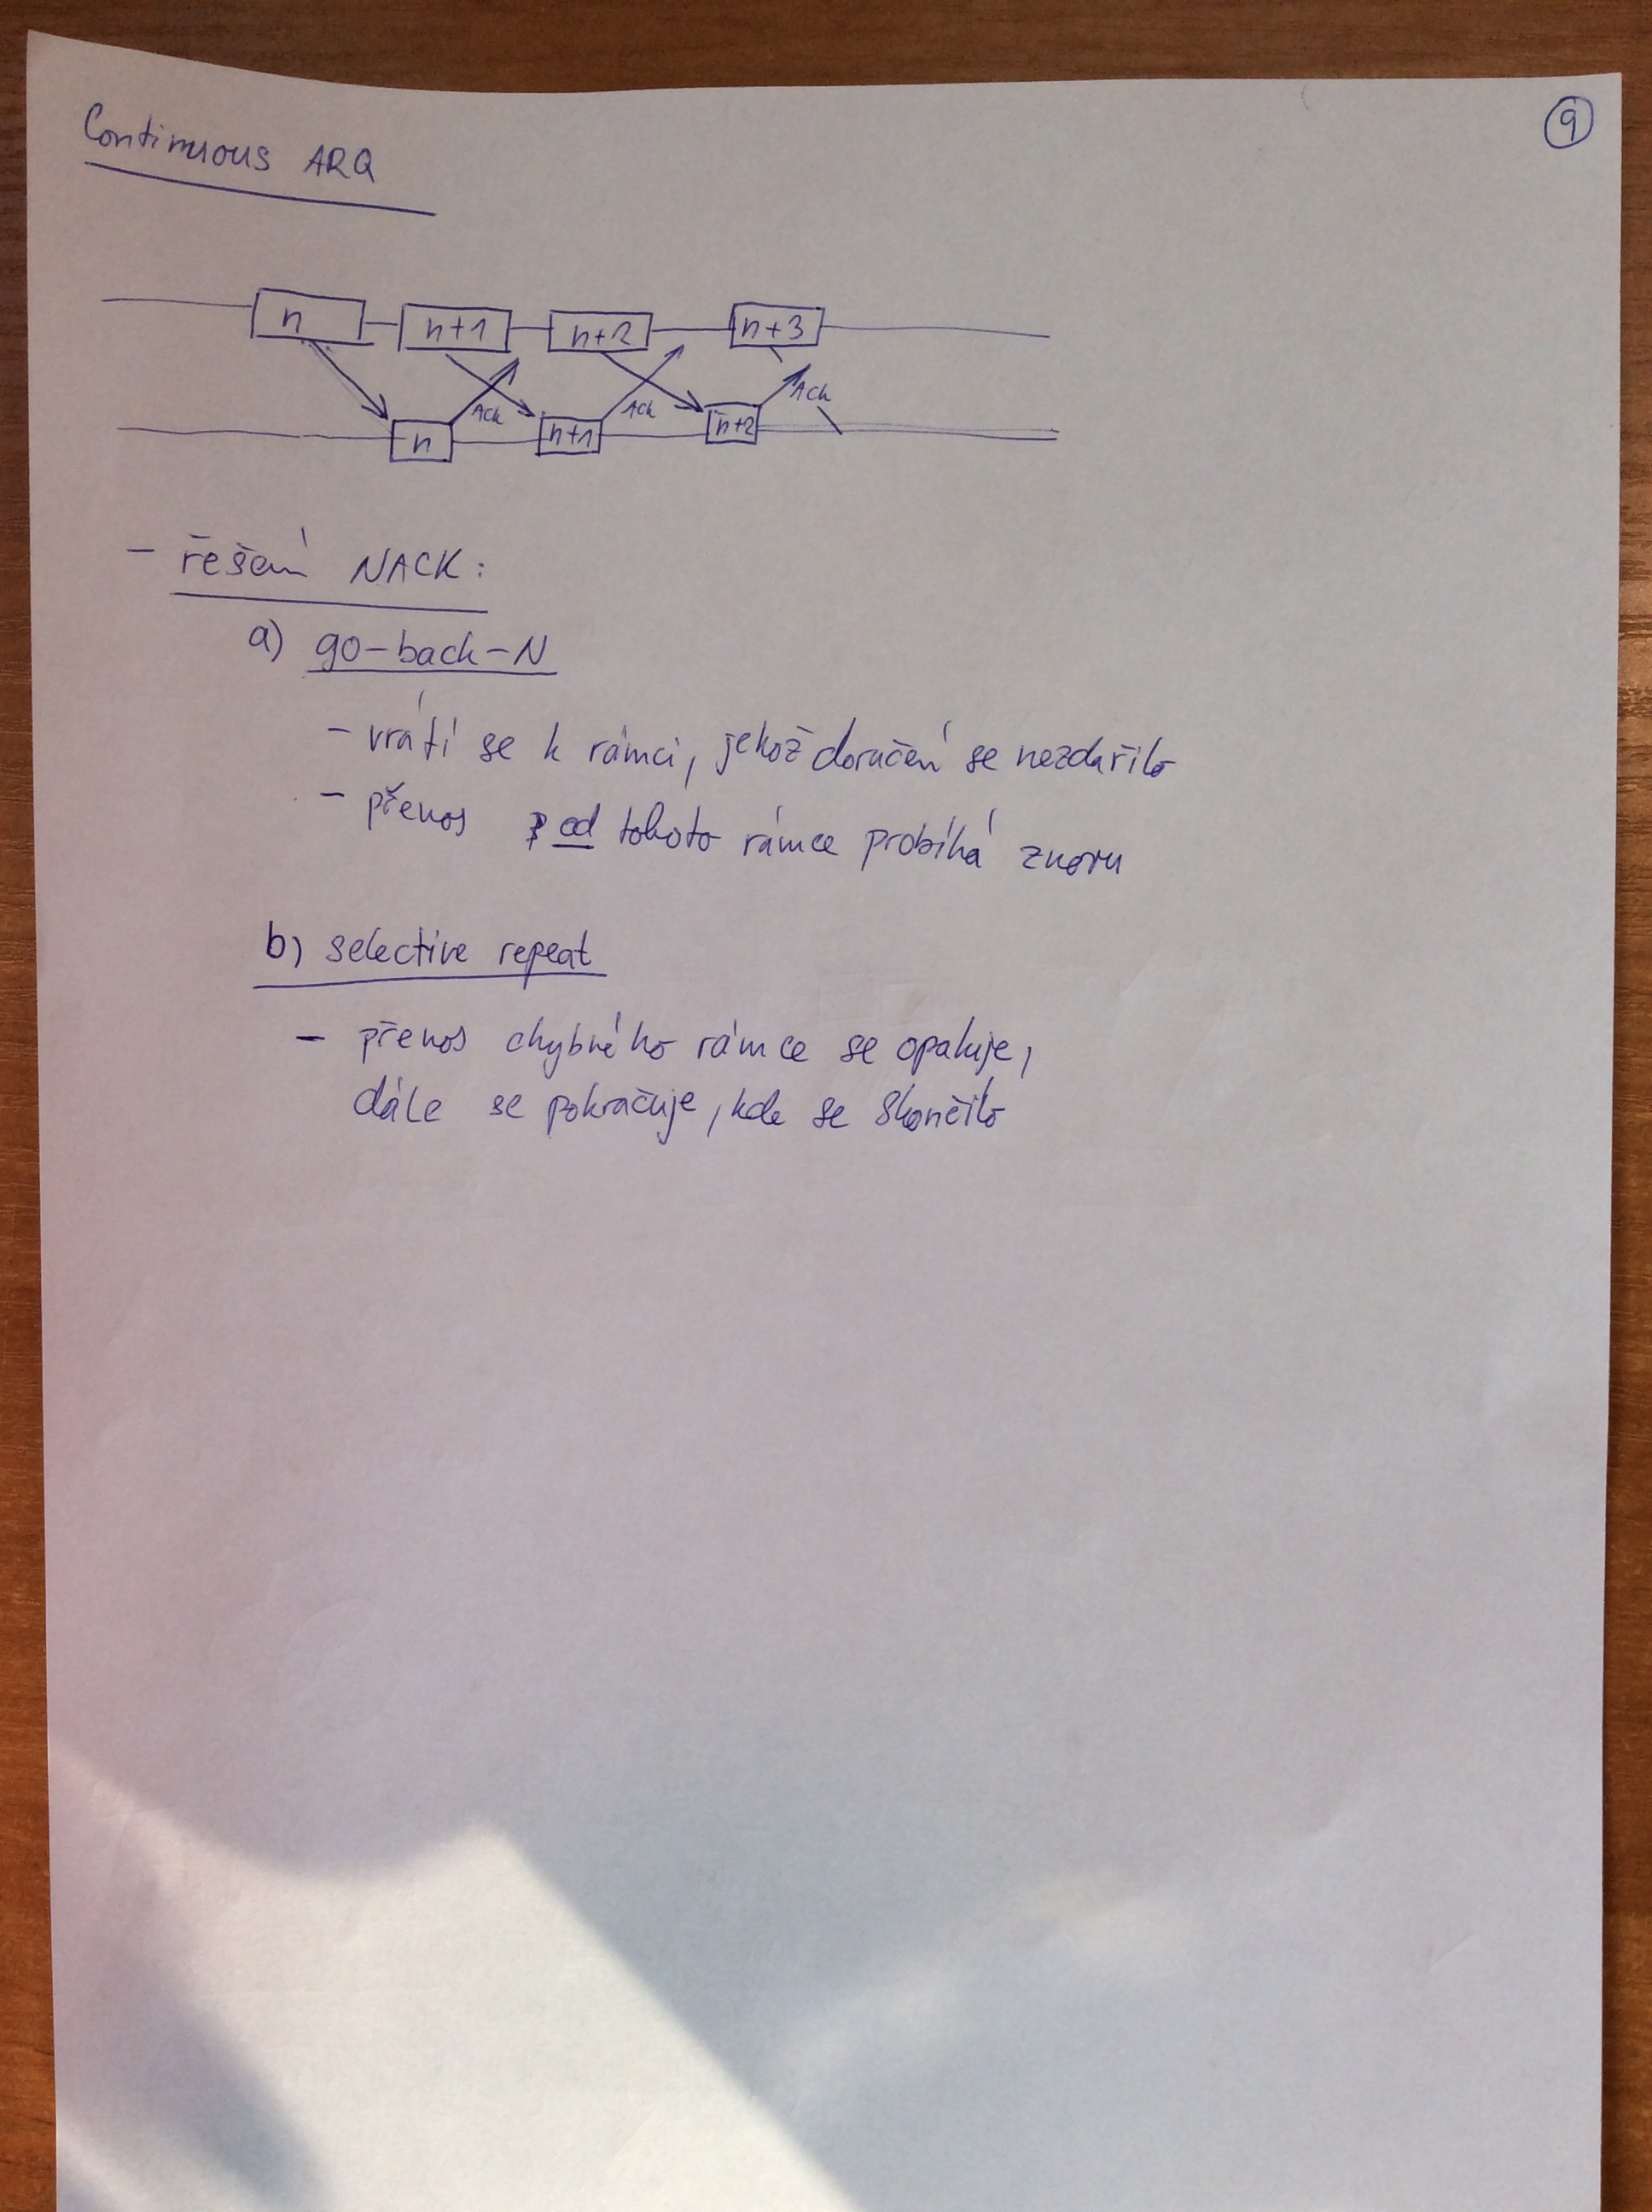 9
Continuous ARQ
n n+1 n+2 n+3
Ack Ack Ack
n n+1 n+2
- řešení NACK:
a) go-back-N
- vrátí se k rámci, jehož doručení se nezdařilo
- přenos od tohoto rámce probíhá znovu
b) selective repeat
- přenos chybného rámce se opakuje,
dále se pokračuje, kde se skončilo